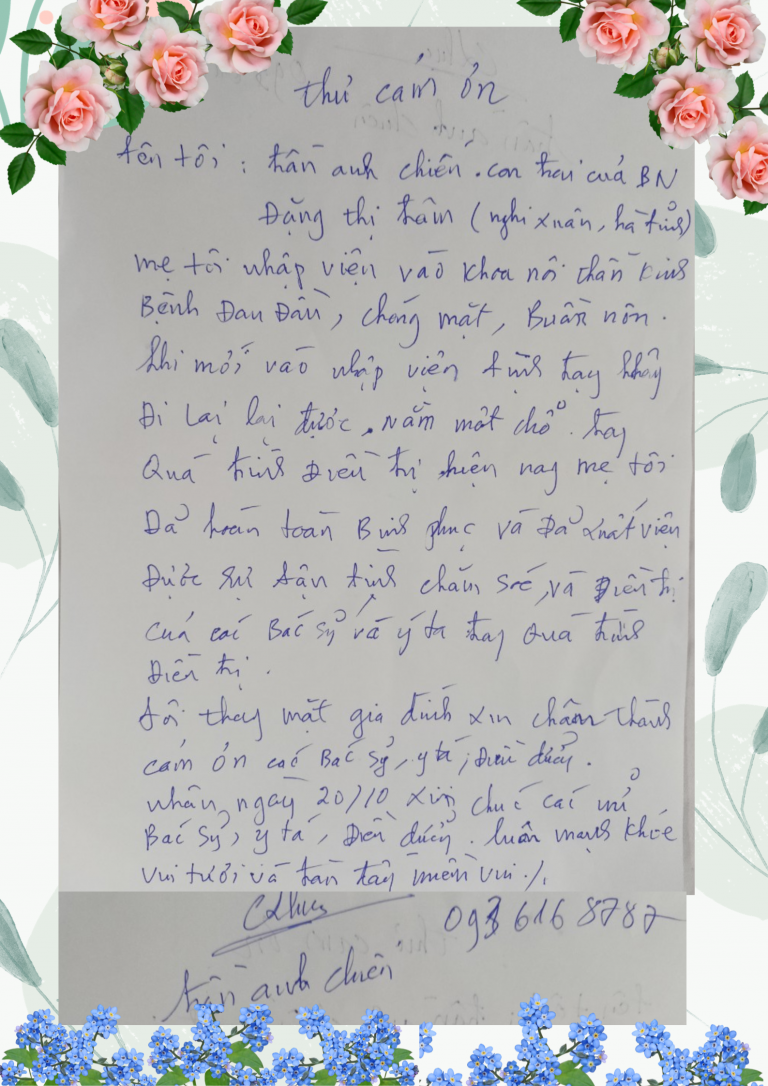 thư cảm ơn
tên tôi : trần anh chiến. con trai của BN
Đặng thị trâm (nghi xuân, hà tĩnh)
mẹ tôi nhập viện vào khoa nội thần kinh
Bệnh Đau Đầu, chóng mặt, Buồn nôn.
khi mới vào nhập viện tình trạng không
Đi lại lại được, nằm một chổ. trãy
Qua trình Điều trị hiện nay mẹ tôi
Đả hoàn toàn Bình phục và Đả xuất viện
Được sự tận tình chăm sóc, và Điều trị
của các Bác sỹ và y tá trong Quá trình
Điều trị.
tôi thay mặt gia đình xin chân thành
cảm ơn các Bác sỹ, y tá, Điều dưởng.
nhân ngày 20/10 xin chúc các nử
Bác sỹ, y tá, Điều dưởng. luôn mạnh khỏe
vui tươi và tràn đầy niềm vui./.
093 616 8787
trần anh chiến